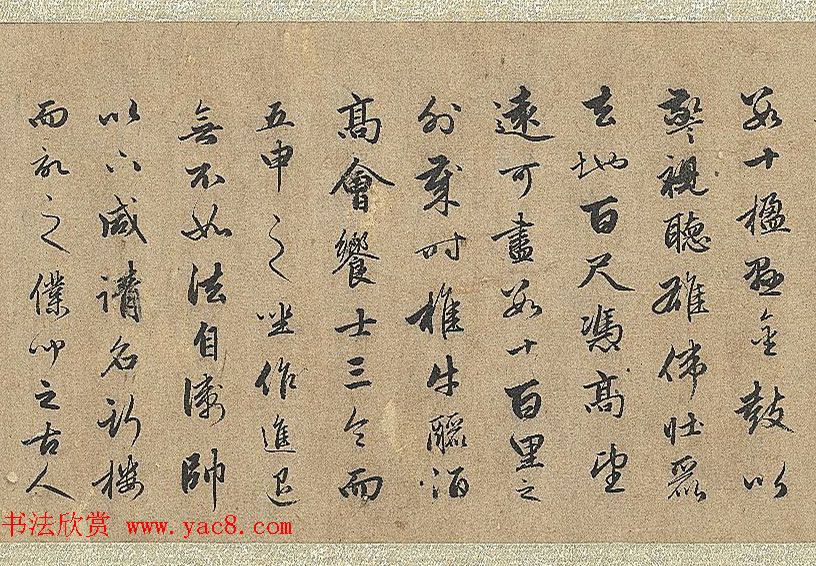 數十楹懸金鼓以
警視聽雄偉壯麗
去地百尺憑高望
遠可盡數十百里之
外歲時椎牛釃酒
高會饗士三令而
五申之坐作進退
無不如法自將帥
以下咸請名新樓
而記之僕聞之古人
书法欣赏 www.yac8.com